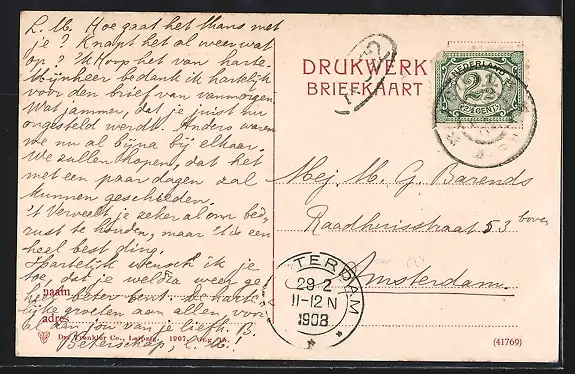 L. M. Hoe gaat het thans met
je? Knapt het al weer wat
op? Ik Hoop het van harte.
Mijnheer bedank ik hartelijk
voor den brief van vanmorgen.
Wat jammer, dat je juist nu
ongesteld werdt. Anders waren
we nu al bijna bij elkaar.
We zullen hopen, dat het
met een paar dagen zal
kunnen geschieden.
't Verveelt je zeker al om bed-
rust te houden, maar 't is een
heel best ding.
Hartelijk wensch ik je
toe, dat je weldra weer ge-
heel beter bent. De harte-
lijke groeten aan allen, voor
al aan jou van je liefh. B.
Beterschap, L. M.!
naam
adres
Dr. Trenkler Co., Leipzig. 1907.
DRUKWERK
BRIEFKAART
NEDERLAND
2½
2½ CENT
Mej. M. G. Barends
Raadhuisstraat 53 boven
Amsterdam.
TERDAM
29-2
11-12 N
1908
(41769)